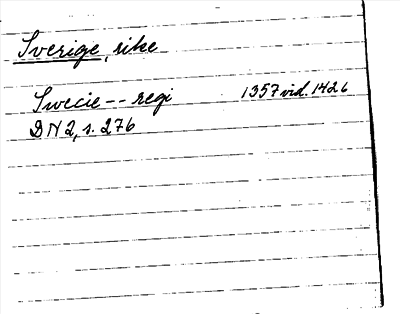 Sverige, rike
Swecie -- regi 1357 vid. 1426
DN 2, s. 276